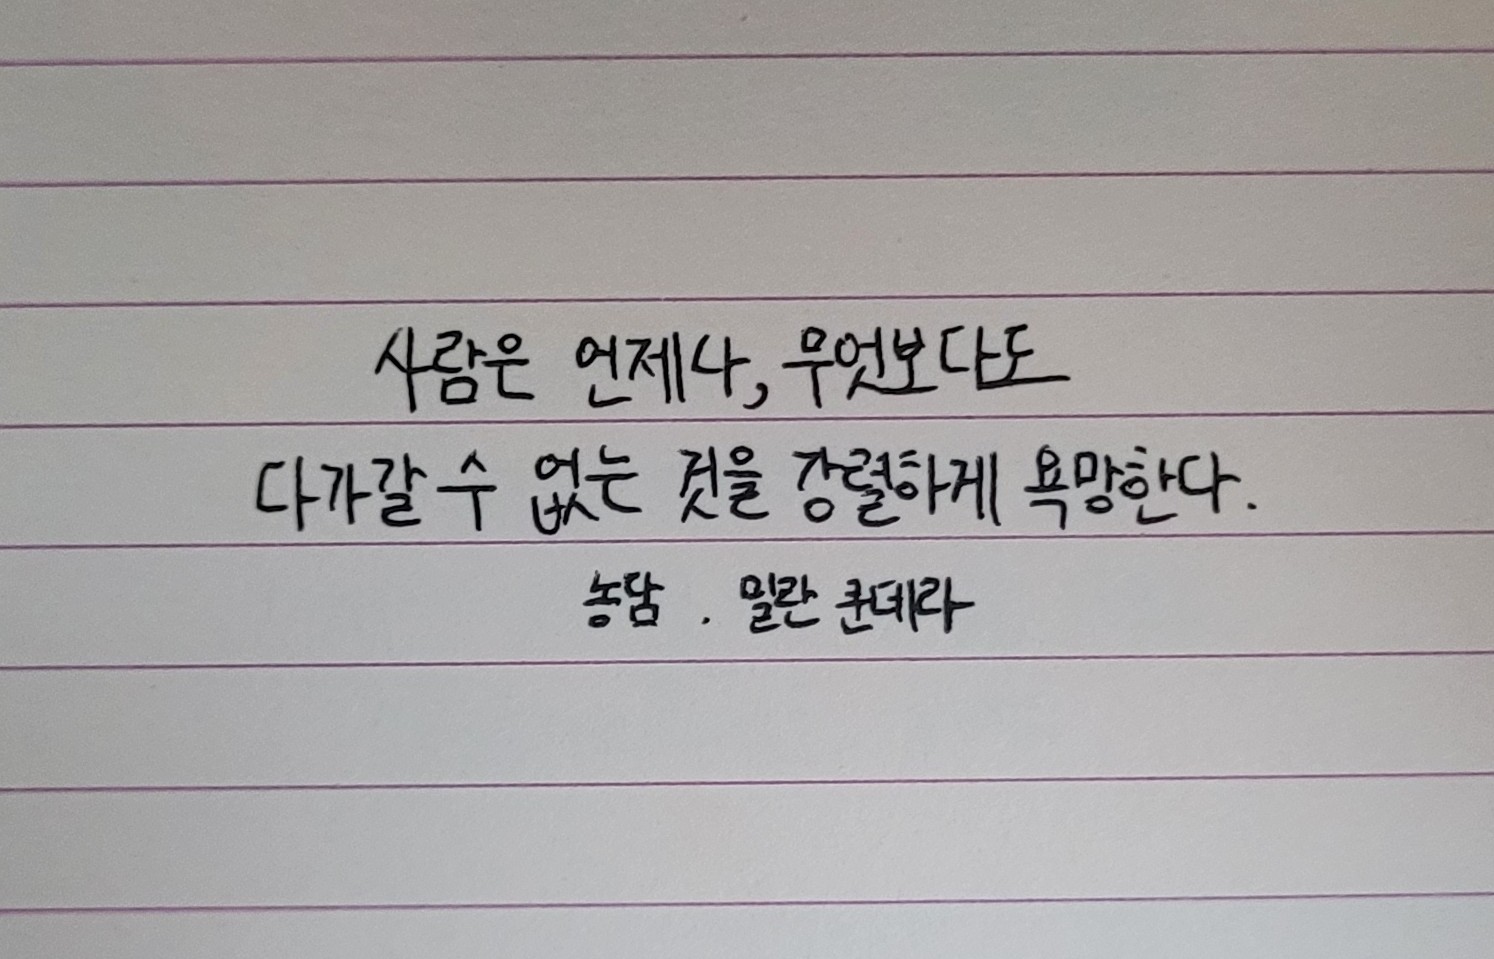 사람은 언제나, 무엇보다도
다가갈 수 없는 것을 강렬하게 욕망한다.
농담 . 밀란 쿤데라